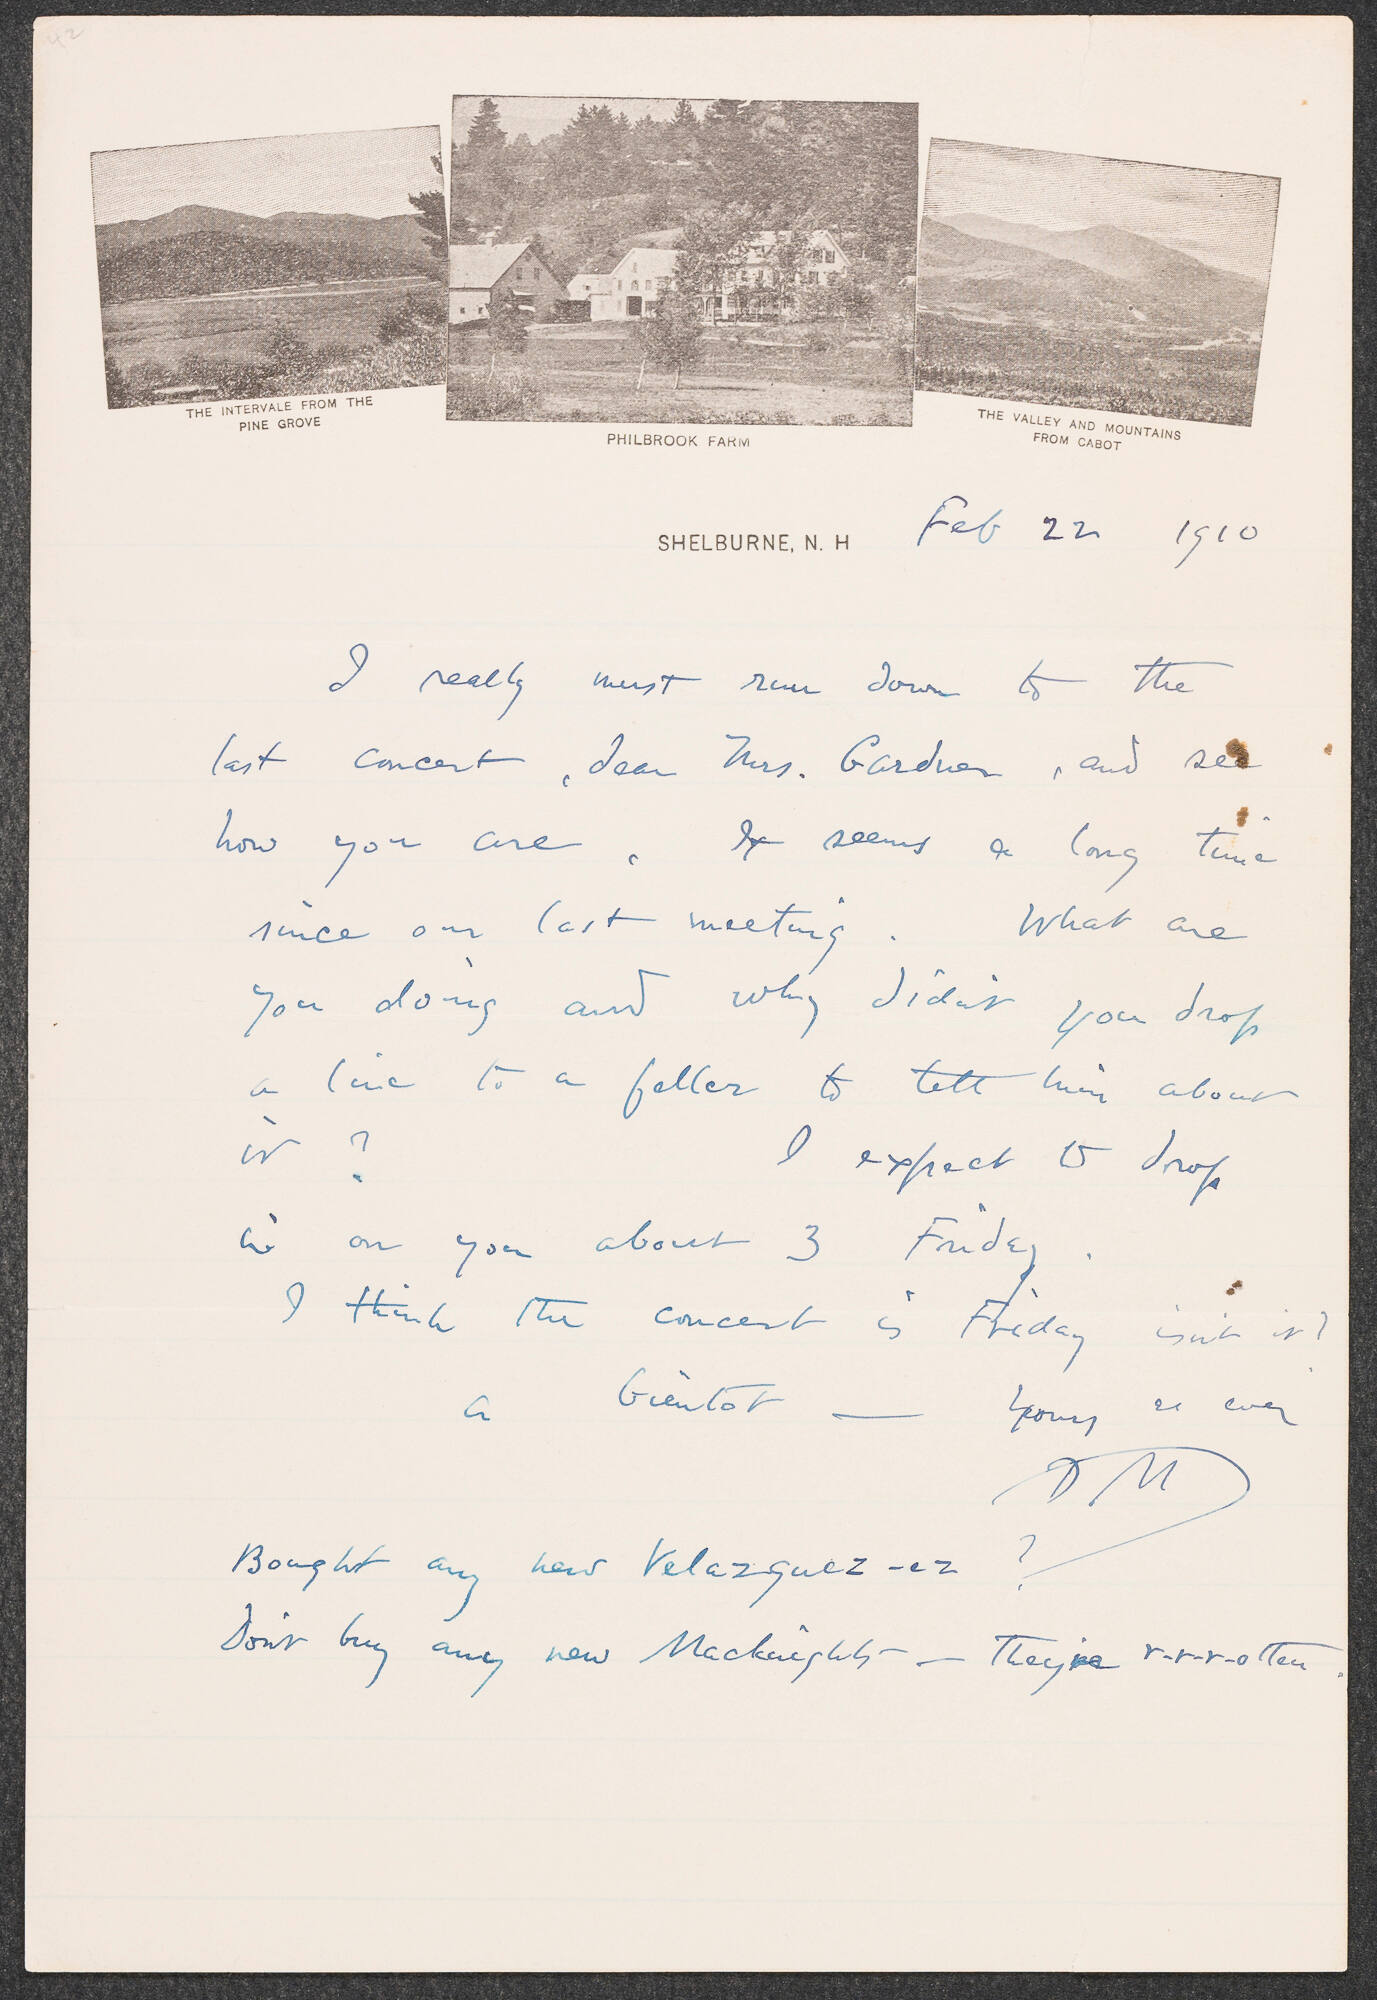 42
THE INTERVALE FROM THE
PINE GROVE
PHILBROOK FARM
THE VALLEY AND MOUNTAINS
FROM CABOT
SHELBURNE, N. H Feb 22 1910
I really must run down to the
last concert, dear Mrs. Gardner, and see
how you are. It seems a long time
since our last meeting. What are
you doing and why didn't you drop
a line to a feller to tell him about
it? I expect to drop
in on you about 3 Friday.
I think the concert is Friday isn't it?
a bientot — Yours as ever
DM
Bought any new Velazquez-ez ?
Don't buy any new Macknights — They're r-r-r-otten.